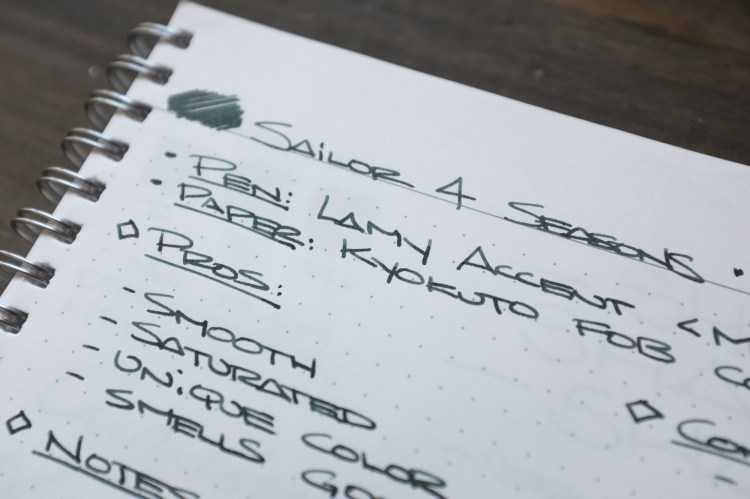 SAiLOR 4 SEASONS •
• PEN: LAMY ACCENT <M
• PAPER: KYOKUTO FOB CO
◇ PROS:
- SMOOTH
- SATURATED
- UNiQUE COLOR
- SMELLS GO
◇ CON
-
◇ NOTES